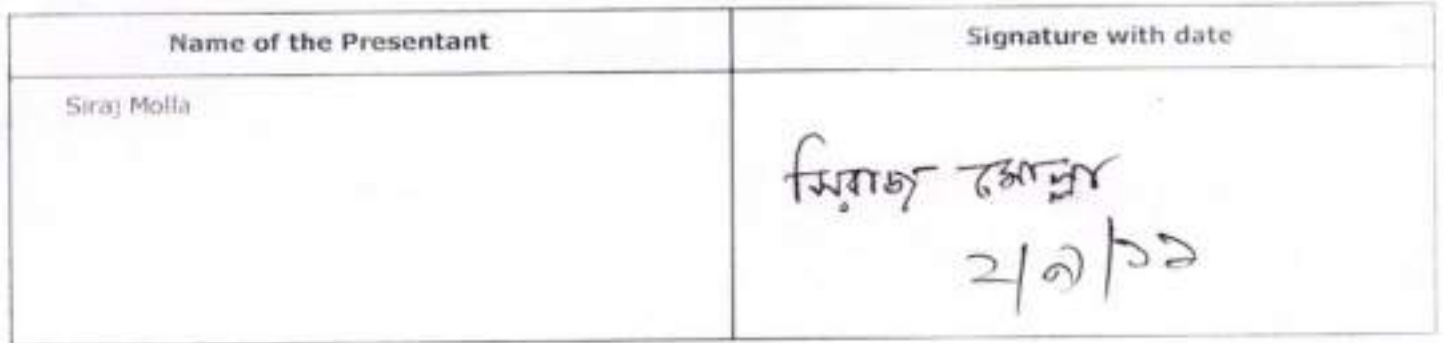 Name of the Presentant
Signature with date
Siraj Molla
সিরাজ মোল্লা
২/৯/১১